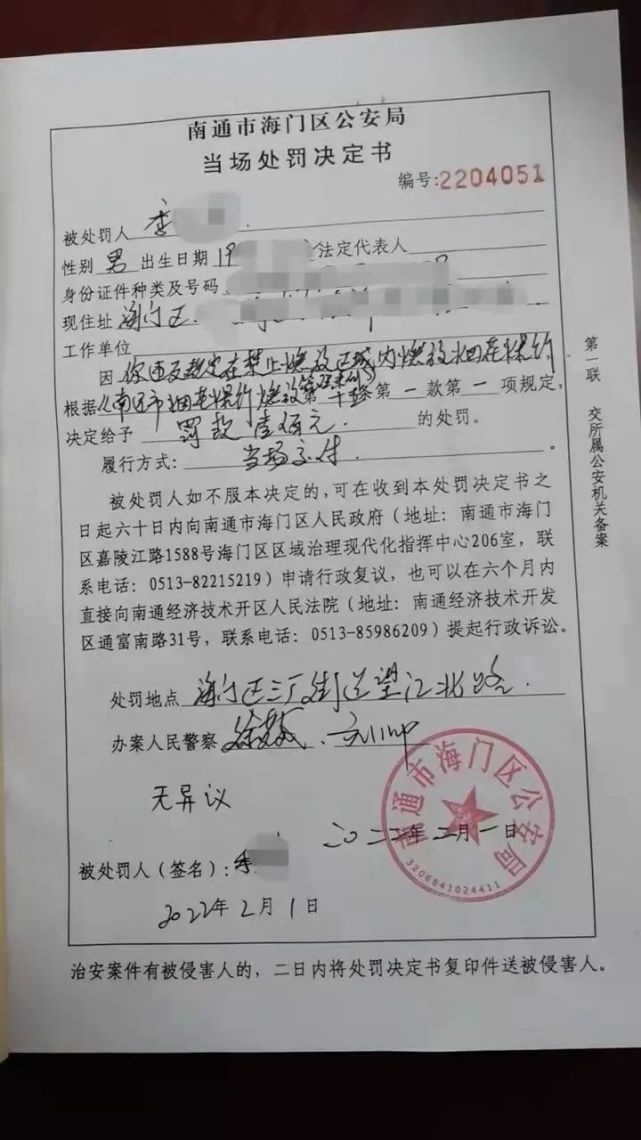 南通市海门区公安局
当场处罚决定书
编号:2204051
被处罚人 李
性别 男 出生日期 19 法定代表人
身份证件种类及号码
现住址 海门区
工作单位
因 你违反规定在禁止燃放区域内燃放烟花爆竹
根据《南通市烟花爆竹燃放管理条例》第十 条第一款第一项规定,
决定给予 罚款壹佰元 的处罚。
履行方式: 当场交付 。
被处罚人如不服本决定的,可在收到本处罚决定书之
日起六十日内向南通市海门区人民政府(地址:南通市海门
区嘉陵江路1588号海门区区域治理现代化指挥中心206室,联
系电话:0513-82215219)申请行政复议,也可以在六个月内
直接向南通经济技术开区人民法院(地址:南通经济技术开发
区通富南路31号,联系电话:0513-85986209)提起行政诉讼。
处罚地点 海门区三厂街道望江北路.
办案人民警察
无异议
南通市海门区公安局
3206841024411
二〇二二年二月一日
被处罚人(签名):
2022年2月1日
治安案件有被侵害人的,二日内将处罚决定书复印件送被侵害人。
第一联 交所属公安机关备案